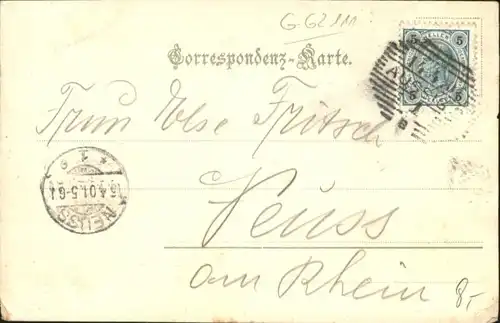 G 62111
Correspondenz-Karte.
5 HELLER 5
17.4
AUSSIG
Frau Else Fritsch
NEUSS
Neuss
am Rhein
8,-